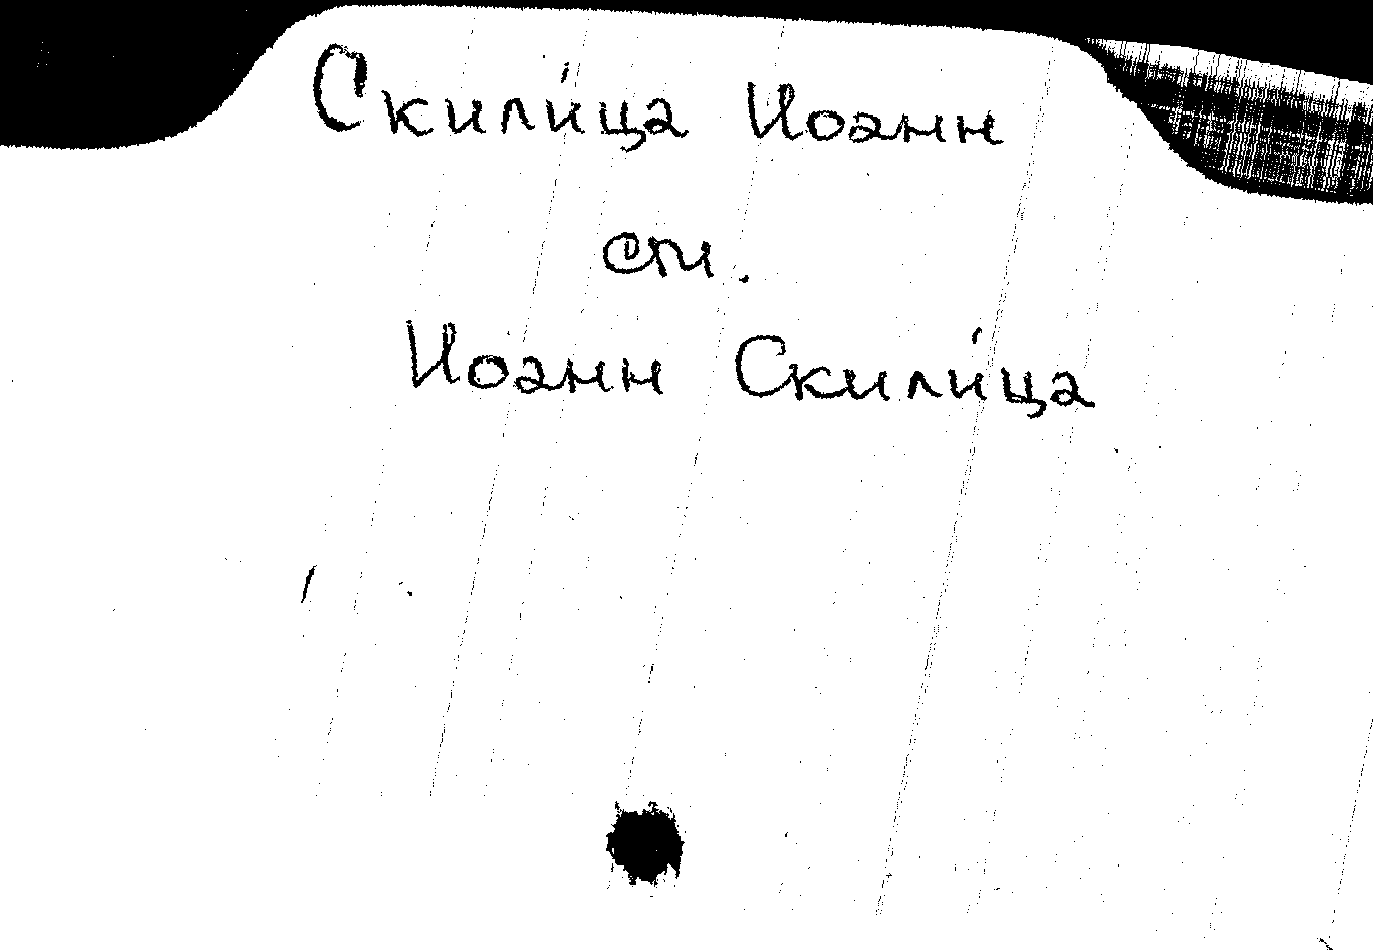 Скили́ца Иоанн
см.
Иоанн Скили́ца